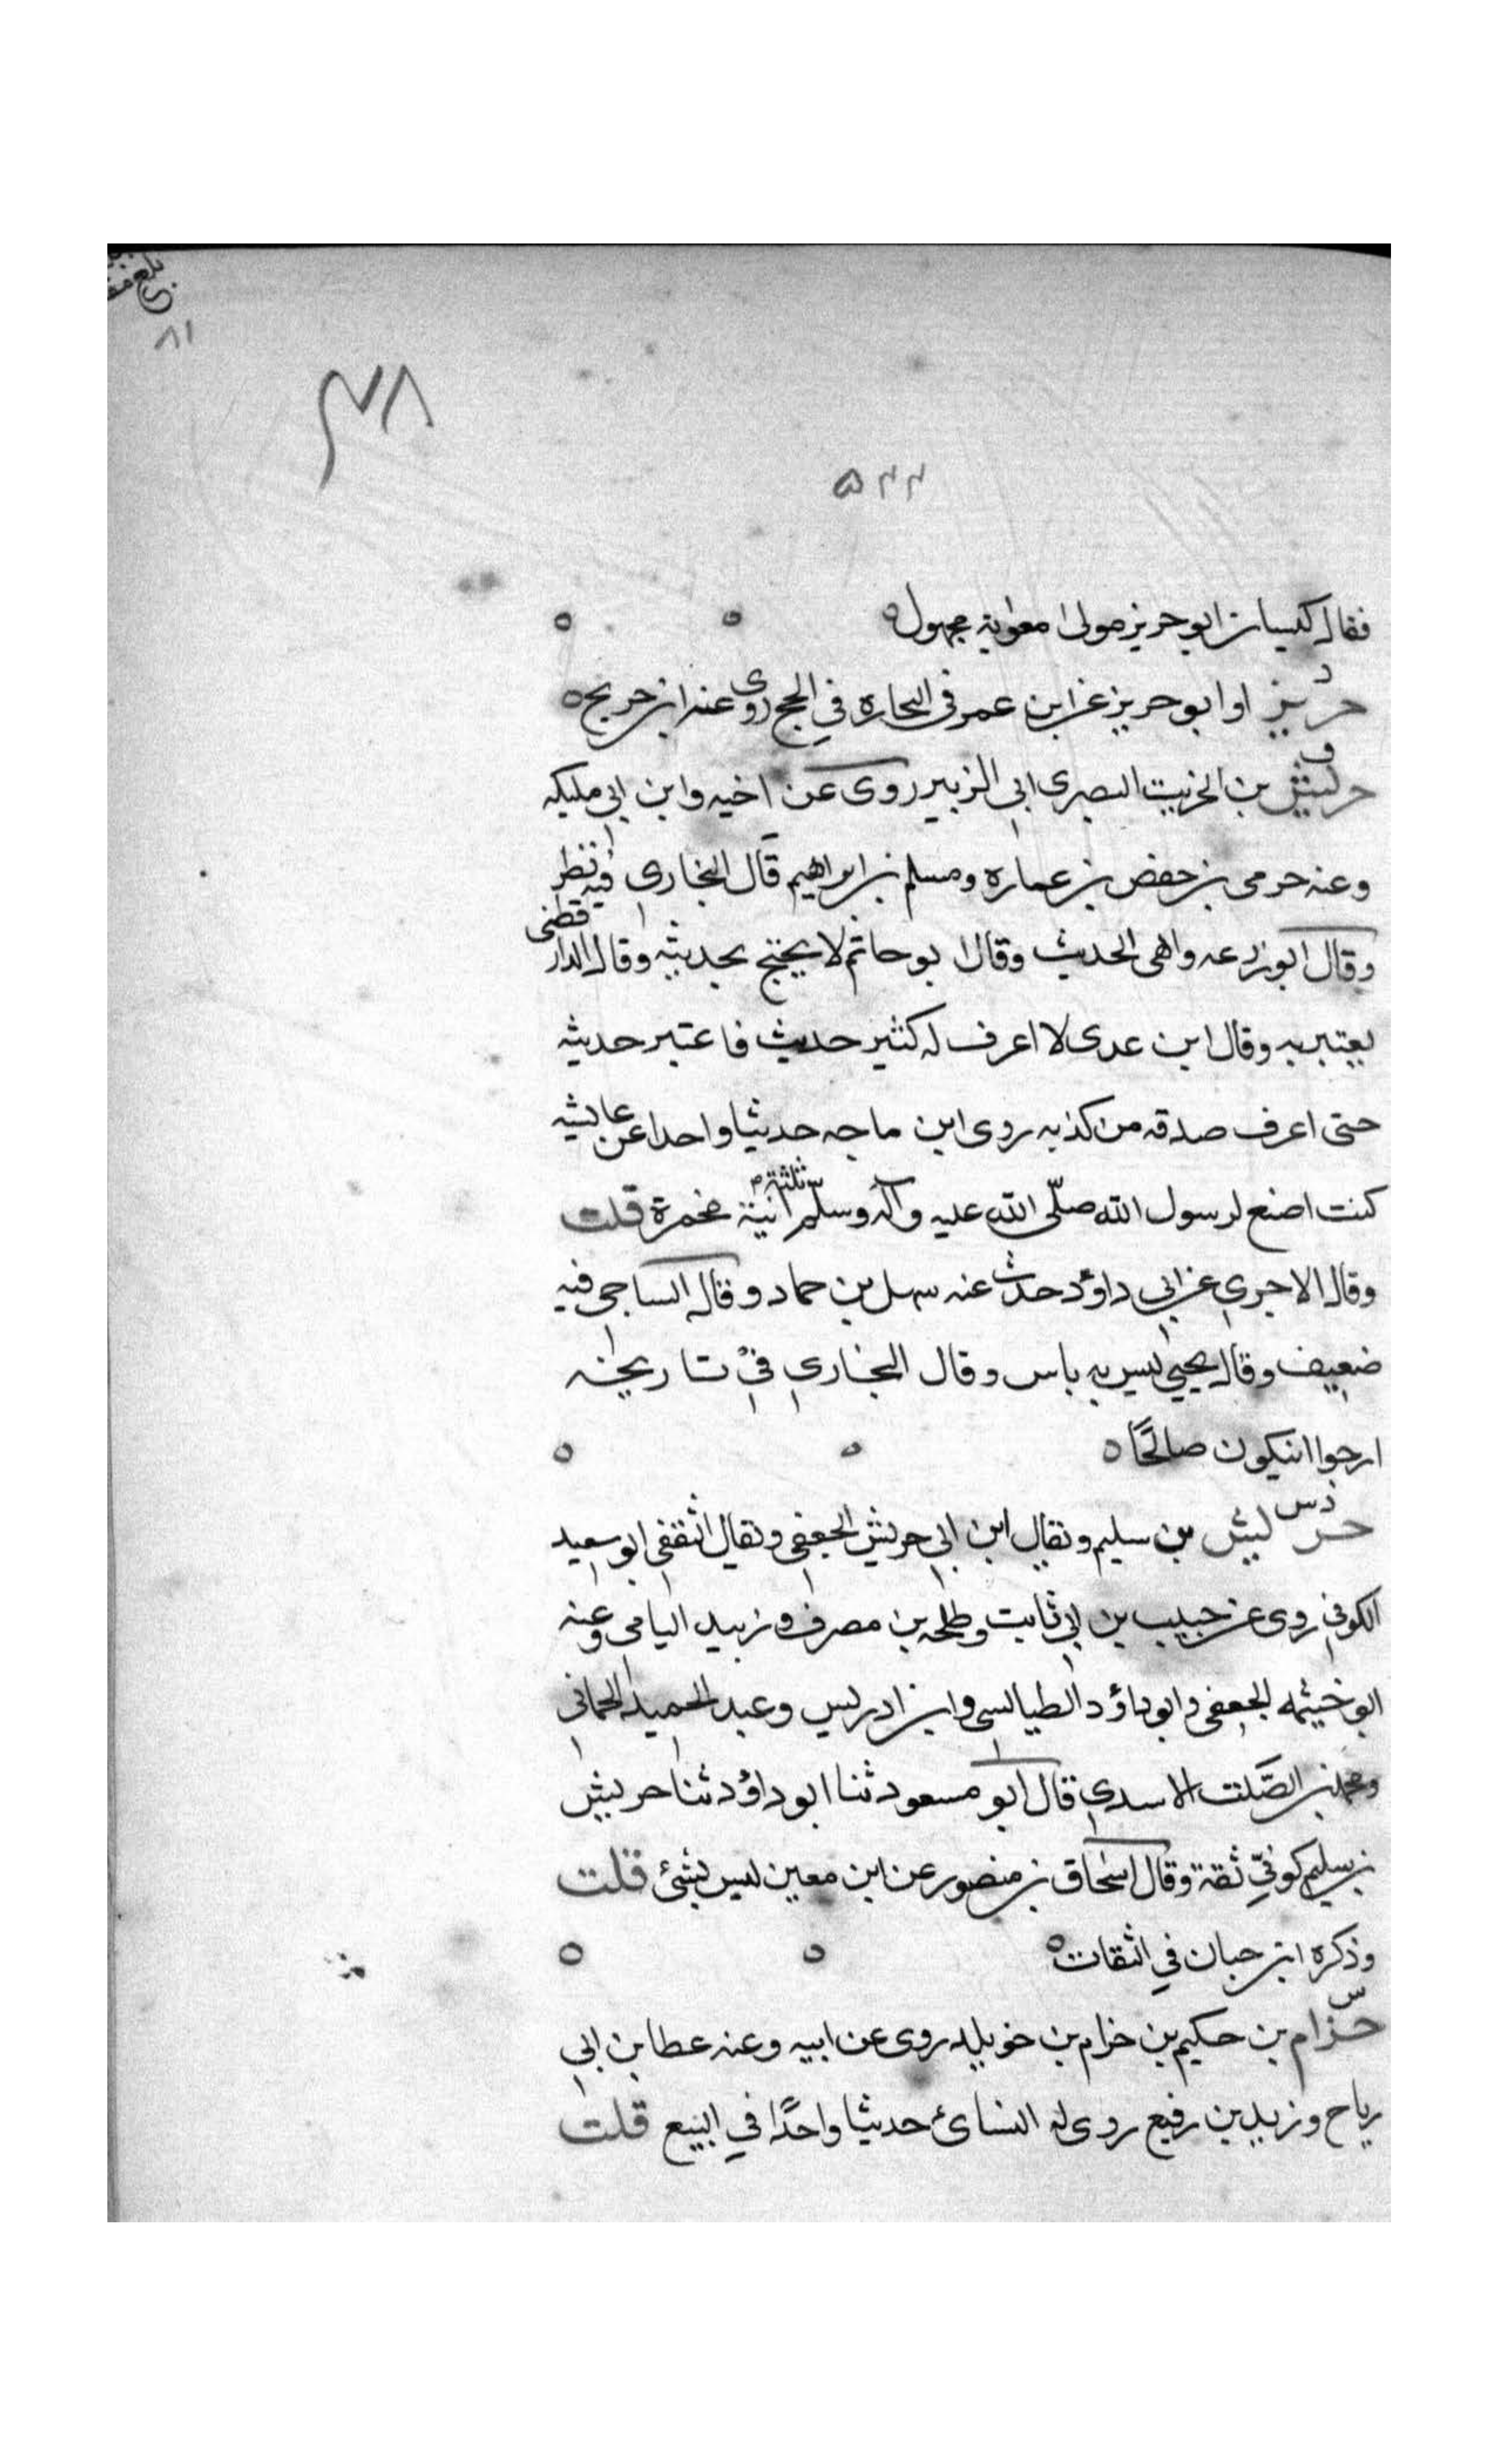 ٨١
٤٨
٥٢٢
فقال كيسان ابو حريز مولى معوية مجهول ه ه ه
د
حريز او ابو حريز عن ابن عمر فى التجارة في الحج روى عنه ابن جريج ه
ق
حريش بن الخريت البصرى ابي الزبير روى عن اخيه وابن ابي مليكه
وعنه حرمى بن حفص بن عماره ومسلم بن ابراهيم قال البخارى فيه نظر
وقال ابو زرعه واهى الحديث وقال ابو حاتم لا يحتج بحديثه وقال الدارقطنى
يعتبر به وقال ابن عدى لا اعرف له كثير حديث فاعتبر حديثه
حتى اعرف صدقه من كذبه روى ابن ماجه حديثا واحدا عن عايشه
كنت اصنع لرسول الله صلّى الله عليه وآله وسلّم ثلثة انية مخمرة قلت
وقال الاجري عن ابي داؤد حدث عنه سهل بن حماد وقال الساجى فيه
ضعيف وقال يحيى ليس به باس وقال البخاري في تاريخه
ارجوا انيكون صالحًا ه ه ه
د س
حريش بن سليم ويقال ابن ابي حريش الجعفى ويقال الثقفى ابو سعيد
الكوفي روى عن حبيب بن ابي ثابت وطلحه بن مصرف وزبيد اليامى وعنه
ابو خيثمه الجعفى وابو داؤد الطيالسى وابن ادريس وعبد الحميد الحمانى
ومحمد بن الصّلت الاسدي قال ابو مسعود ثنا ابو داؤد ثنا حريش
بن سليم كوفيّ ثقة وقال اسحاق بن منصور عن ابن معين ليس بشئ قلت
وذكره ابن حبان في الثقات ه ه ه
س
حزام بن حكيم بن حزام بن خويلد روى عن ابيه وعنه عطا بن ابي
رباح وزيد بن رفيع روى له النسائ حديثا واحدًا في البيع قلت